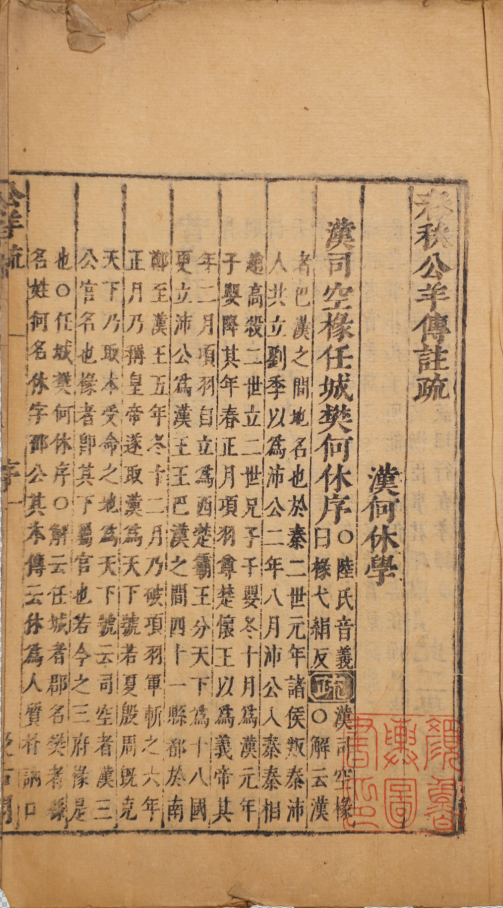 春秋公羊傳註疏
漢何休學
漢司空掾任城樊何休序○陸氏音義曰掾弋絹反疏漢司空掾○解云漢
者巴漢之間地名也於秦二世元年諸侯叛秦沛
人共立劉季以爲沛公二年八月沛公入秦秦相
趙高殺二世立二世兄子子嬰冬十月爲漢元年
子嬰降其年春正月項羽尊楚懷王以爲義帝其
年二月項羽自立爲西楚霸王分天下爲十八國
更立沛公爲漢王王巴漢之間四十一縣都於南
鄭至漢王五年冬十二月乃破項羽軍斬之六年
正月乃稱皇帝遂取漢爲天下號若夏殷周既克
天下乃取本受命之地爲天下號云司空者漢三
公官名也掾者卽其下屬官也若今之三府掾是
也○任城樊何休序○解云任城者郡名樊者縣
名姓何名休字邵公其本傳云休爲人質朴訥口
公羊疏
序